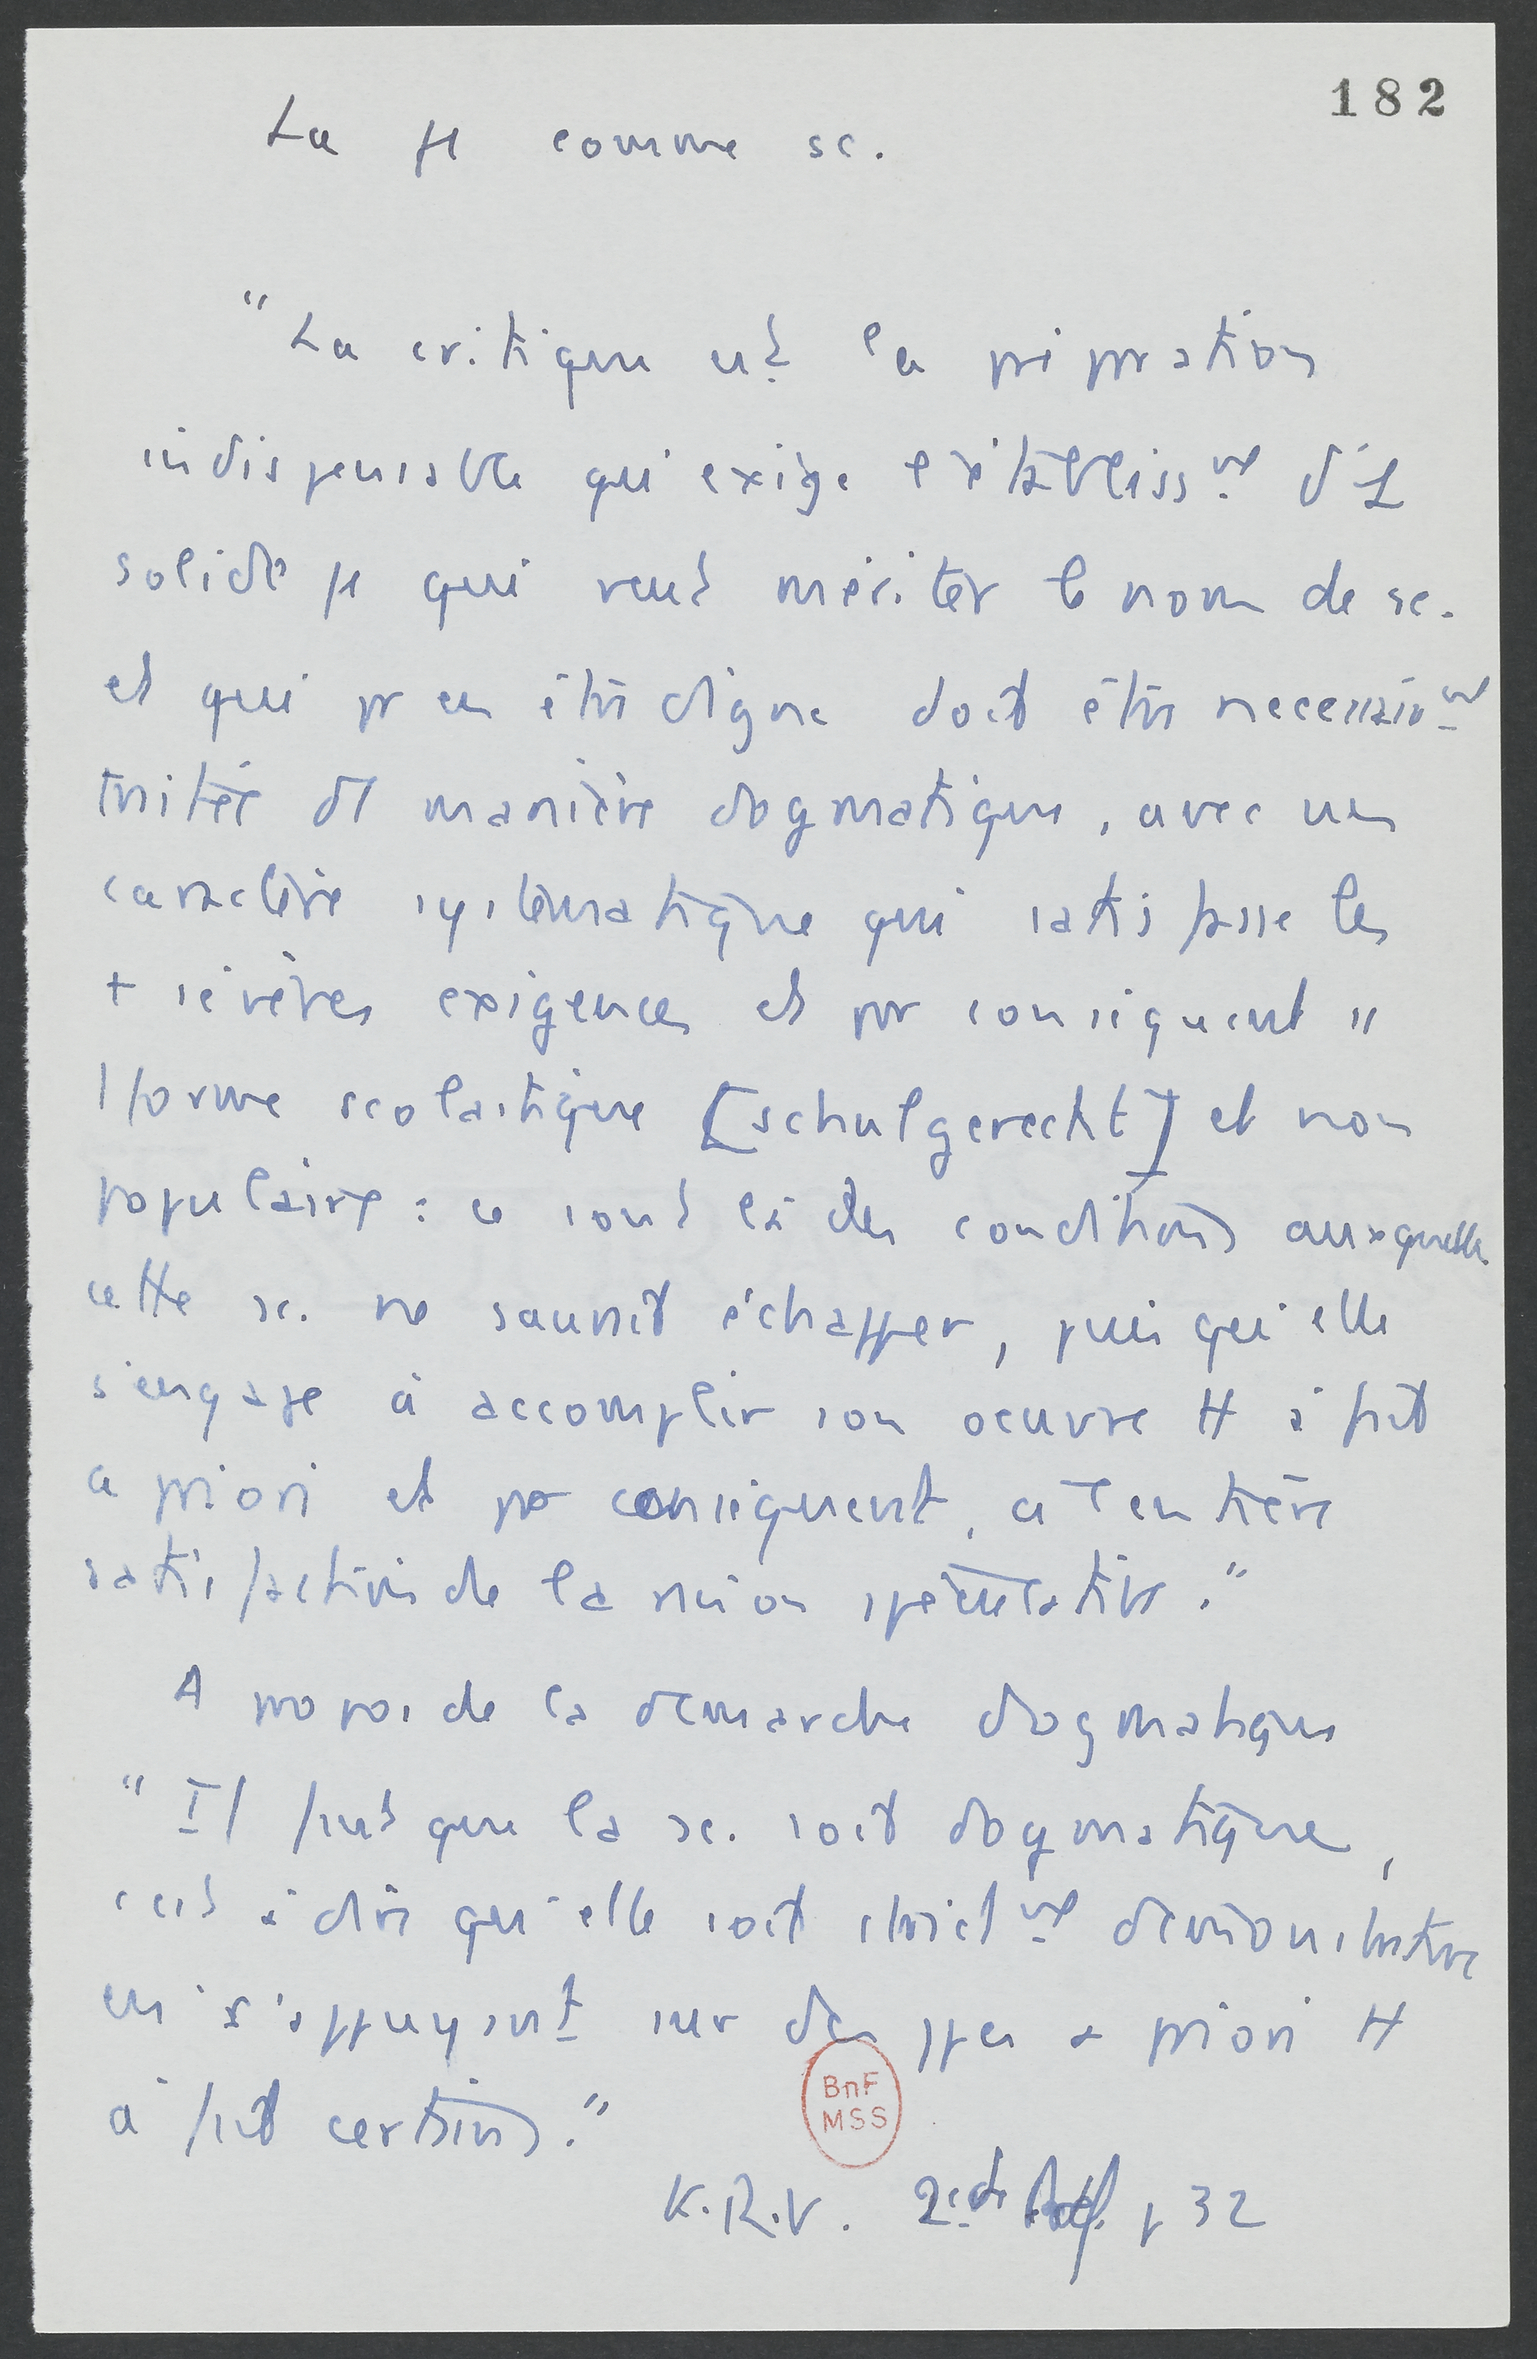 182
La φ comme sc.
"La critique est la préparation
indispensable qu'exige l'établissmt d'1
solide φ qui veut mériter le nom de sc.
et qui pr en être digne doit être nécessairmt
traitée d1 manière dogmatique, avec un
caractère systématique qui satisfasse les
+ sévères exigences et par conséquent ss
1 forme scolastique [schulgerecht] et non
populaire : ce sont là des conditions auxquelles
cette sc. ne saurait échapper, puisqu'elle
s'engage à accomplir son oeuvre tt à fait
a priori et par conséquent, à l'entière
satisfaction de la raison spéculative."
A propos de la démarche dogmatique
"Il faut que la sc. soit dogmatique,
c'est à dire qu'elle soit strictmt démonstrative
en s'appuyant sur des ppes a priori tt
à fait certains."
BnF
MSS
K.R.V. 2de Préf. p 32